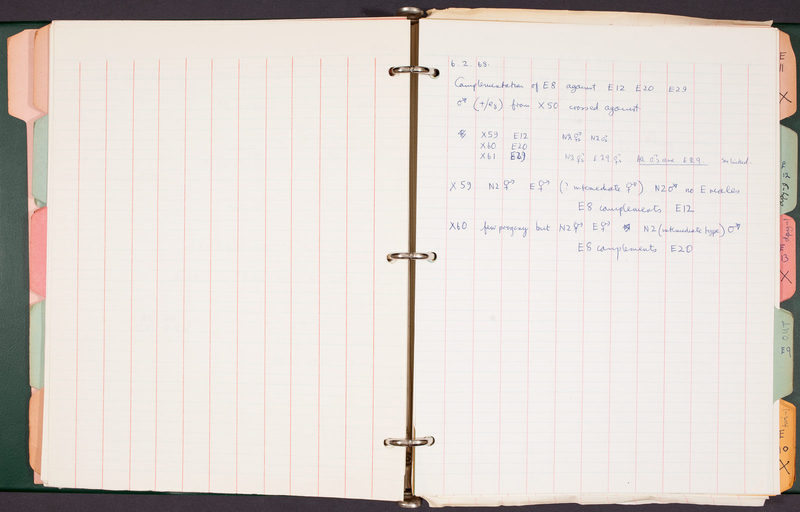 6. 2. 68.
Complementation of E8 against E12 E20 E29
♂ (+/e8) from X50 crossed against
X59 E12 N2 ⚥ N2 ♂
X60 E20
X61 E29 N2 ⚥ E29 ⚥ ♂ are E29
X59 N2 ⚥ E ⚥ (? intermediate ⚥) N2 ♂ no E males
E8 complements E12
X60 few progeny but N2 ⚥ E ⚥ N2 (intermediate type) ♂
E8 complements E20
E
11
X
dpy-1
E
13
X
OUT
E9
E
10
X